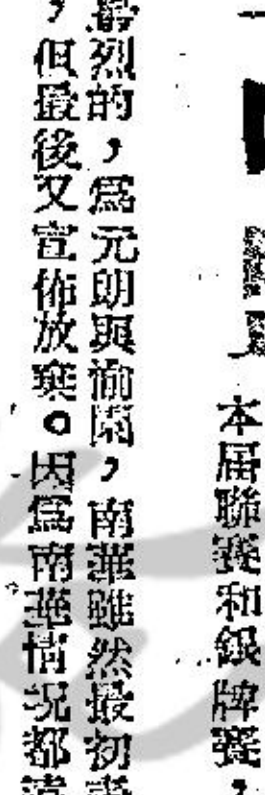 本届聯賽和銀牌賽，
烈的，爲元朗與愉園，南華雖然最初
，但最後又宣佈放棄。因爲南華情況都